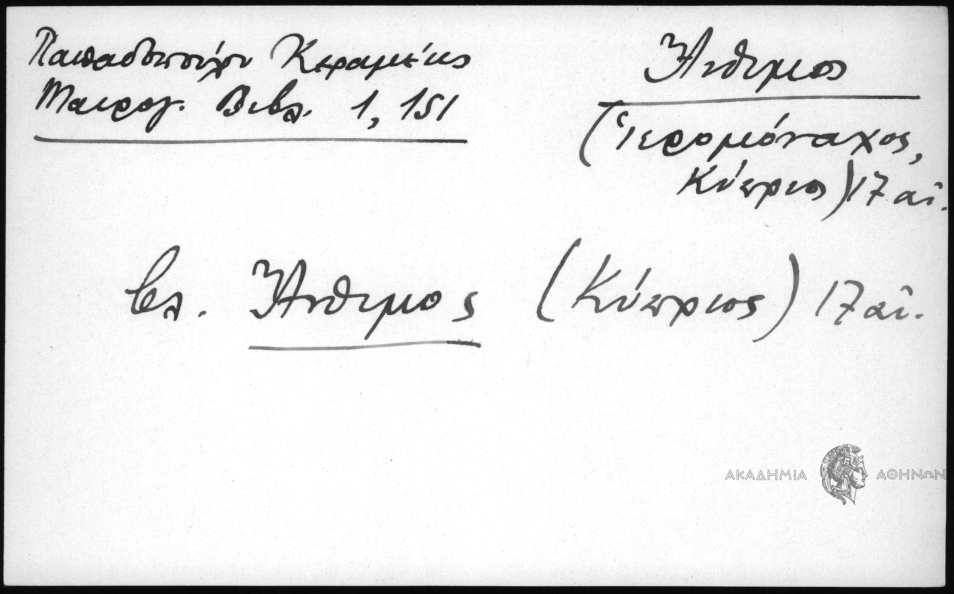 Παπαδοπούλου Κεραμέως
Μαυρογ. Βιβλ. 1, 151
Ἄνθιμος
(Ἱερομόναχος,
Κύπριος) 17 αἰ.
βλ. Ἄνθιμος (Κύπριος) 17 αἰ.
ΑΚΑΔΗΜΙΑ ΑΘΗΝΩΝ